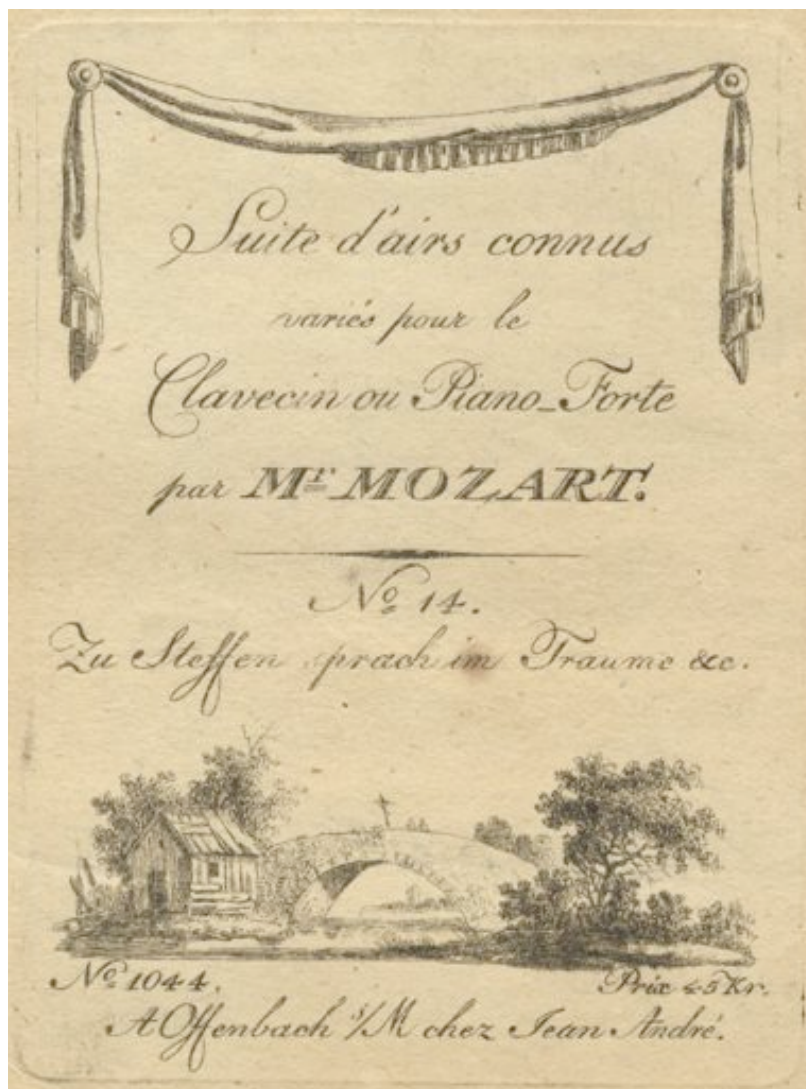 Suite d'airs connus
variés pour le
Clavecin ou Piano-Forte
par Mr MOZART.
No 14.
Zu Steffen sprach im Traume &c.
No 1044. Prix 45 Kr.
A Offenbach s/M chez Jean André.